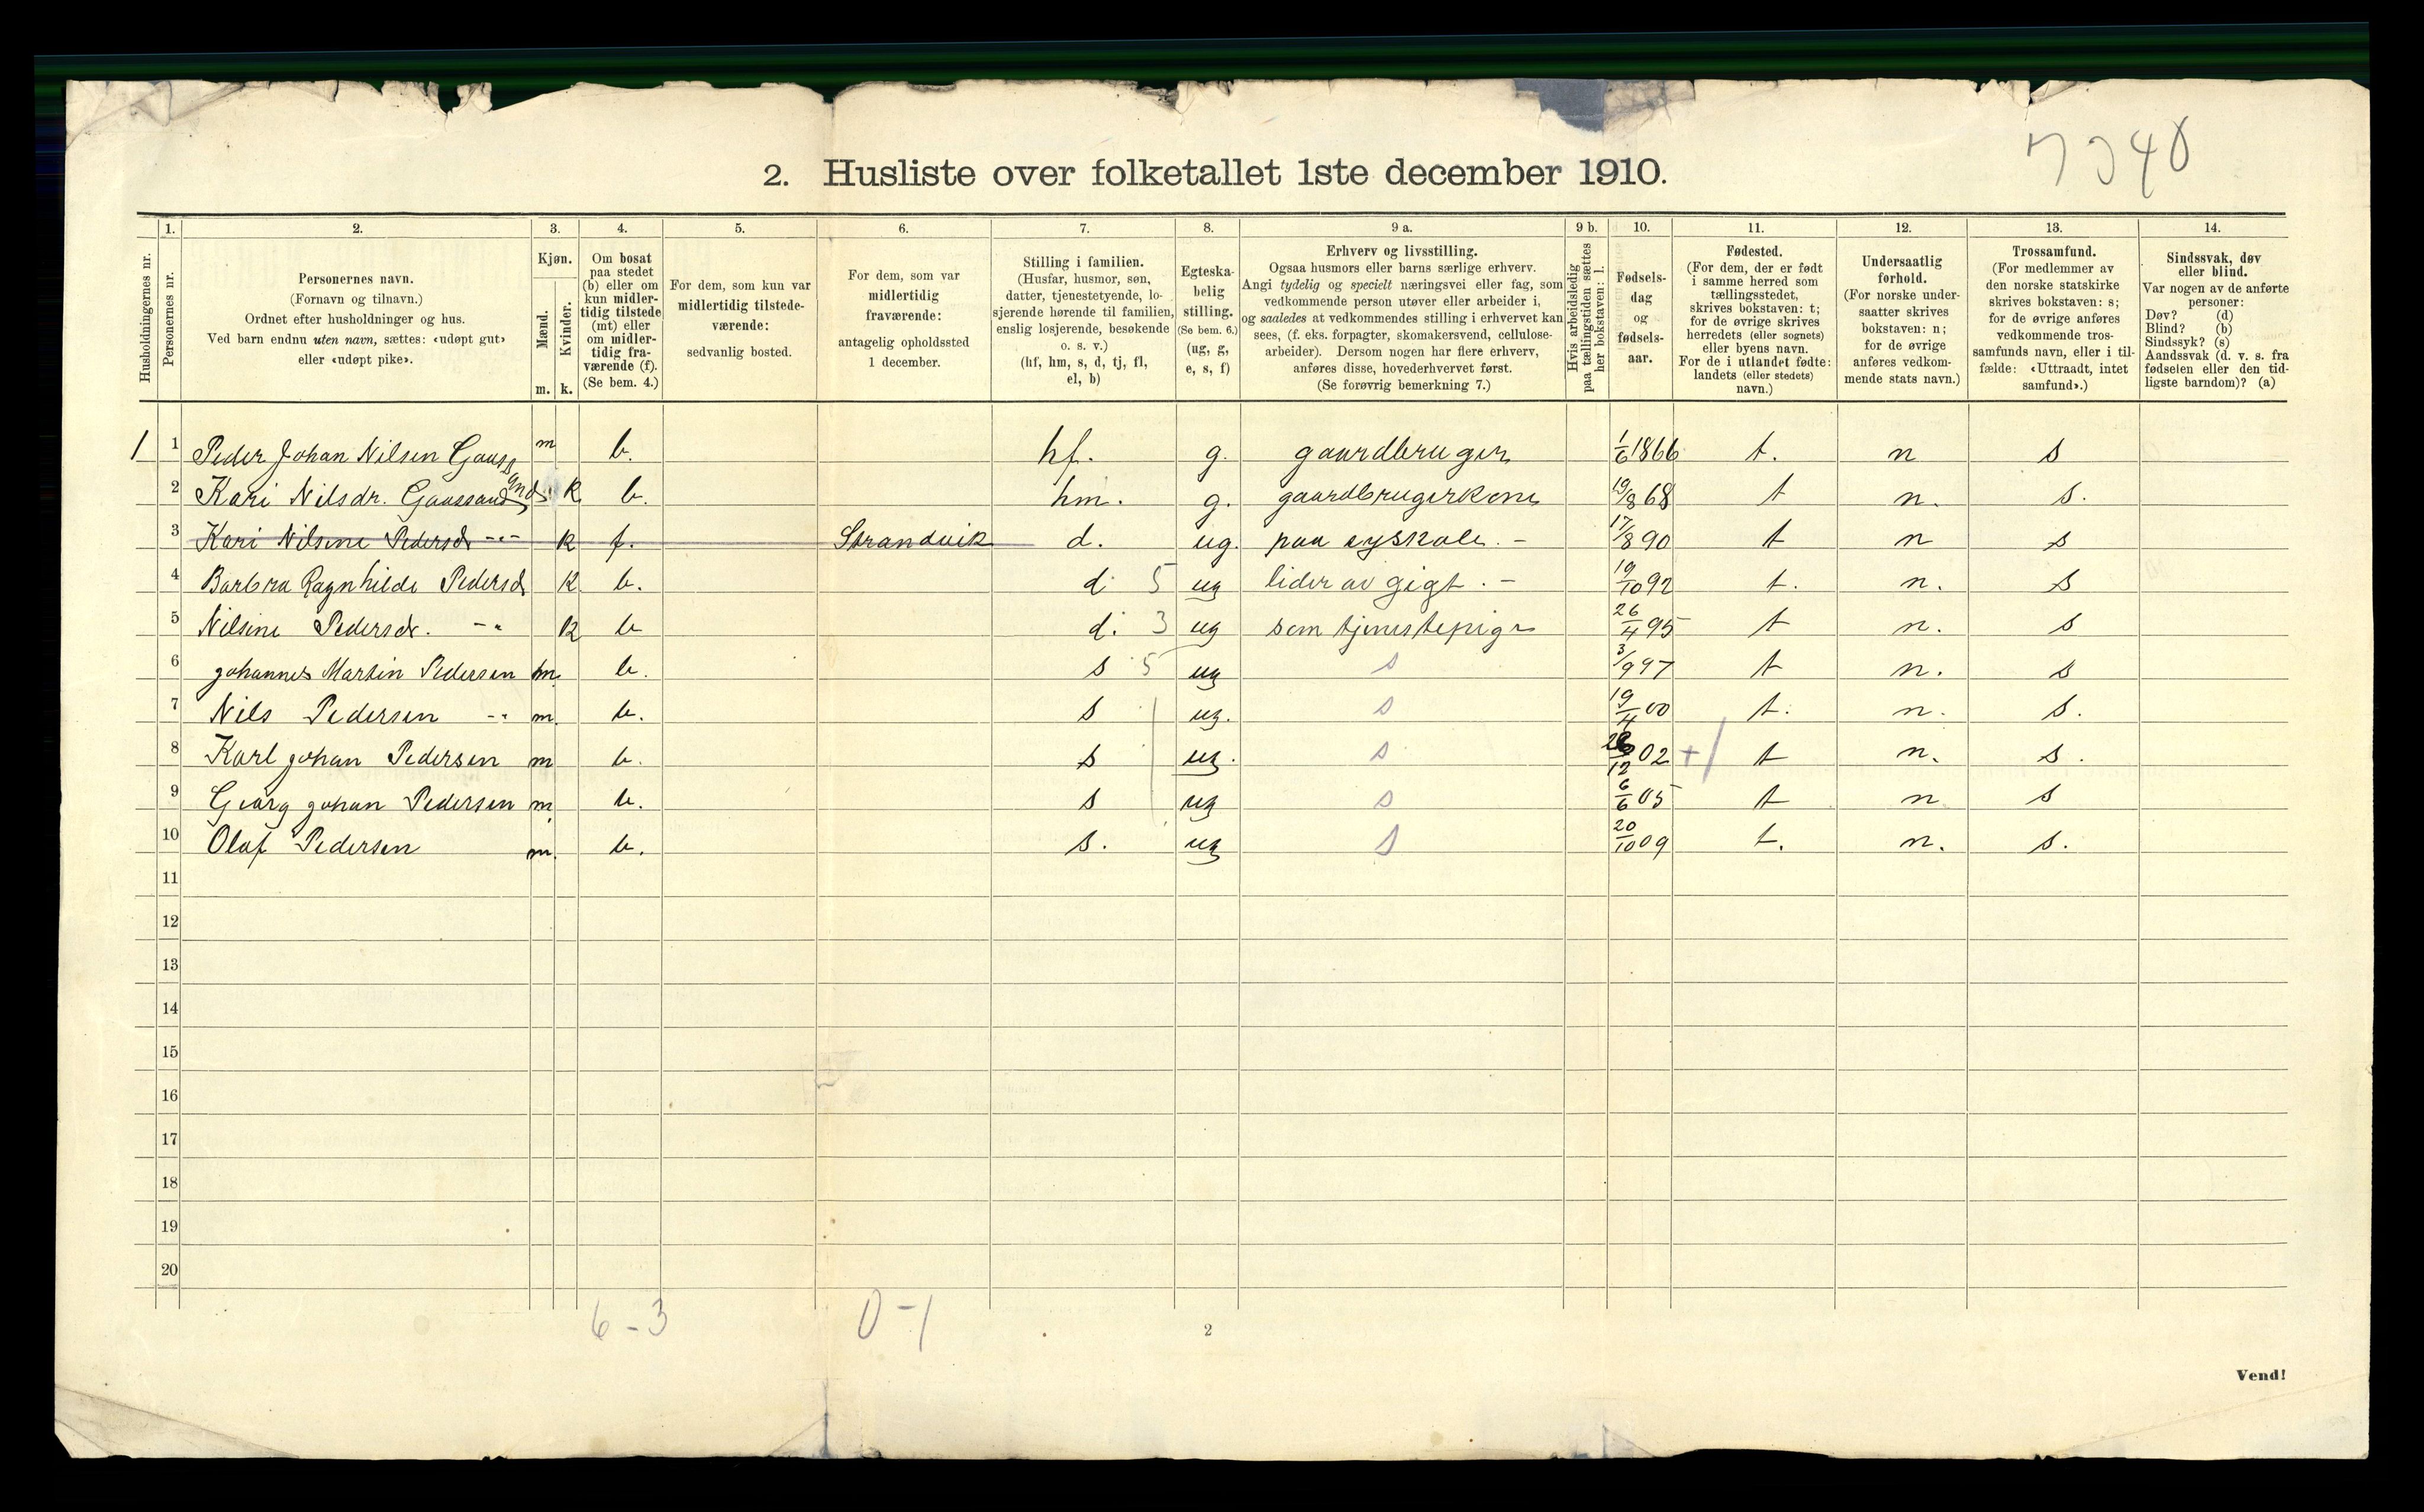 7340
2. Husliste over folketallet 1ste december 1910.
Husholdningernes nr.
1.
Personernes nr.
2.
Personernes navn.
(Fornavn og tilnavn.)
Ordnet efter husholdninger og hus.
Ved barn endnu uten navn, sættes: «udøpt gut»
eller «udøpt pike».
3.
Kjøn.
Mænd.
Kvinder.
m. k.
4.
Om bosat
paa stedet
(b) eller om
kun midler-
tidig tilstede
(mt) eller
om midler-
tidig fra-
værende (f).
(Se bem. 4.)
5.
For dem, som kun var
midlertidig tilstede-
værende:
sedvanlig bosted.
6.
For dem, som var
midlertidig
fraværende:
antagelig opholdssted
1 december.
7.
Stilling i familien.
(Husfar, husmor, søn,
datter, tjenestetyende, lo-
sjerende hørende til familien,
enslig losjerende, besøkende
o. s. v.)
(hf, hm, s, d, tj, fl,
el, b)
8.
Egteska-
belig
stilling.
(Se bem. 6.)
(ug, g,
e, s, f)
9 a.
Erhverv og livsstilling.
Ogsaa husmors eller barns særlige erhverv.
Angi tydelig og specielt næringsvei eller fag, som
vedkommende person utøver eller arbeider i,
og saaledes at vedkommendes stilling i erhvervet kan
sees, (f. eks. forpagter, skomakersvend, cellulose-
arbeider). Dersom nogen har flere erhverv,
anføres disse, hovederhvervet først.
(Se forøvrig bemerkning 7.)
9 b.
Hvis arbeidsledig
paa tællingstiden sættes
her bokstaven: l.
10.
Fødsels-
dag
og
fødsels-
aar.
11.
Fødested.
(For dem, der er født
i samme herred som
tællingsstedet,
skrives bokstaven: t;
for de øvrige skrives
herredets (eller sognets)
eller byens navn.
For de i utlandet fødte:
landets (eller stedets)
navn.)
12.
Undersaatlig
forhold.
(For norske under-
saatter skrives
bokstaven: n;
for de øvrige
anføres vedkom-
mende stats navn.)
13.
Trossamfund.
(For medlemmer av
den norske statskirke
skrives bokstaven: s;
for de øvrige anføres
vedkommende tros-
samfunds navn, eller i til-
fælde: «Uttraadt, intet
samfund».)
14.
Sindssvak, døv
eller blind.
Var nogen av de anførte
personer:
Døv? (d)
Blind? (b)
Sindssyk? (s)
Aandssvak (d. v. s. fra
fødselen eller den tid-
ligste barndom)? (a)
1 1 Peder Johan Nilsen Gaassand m b. hf. g. gaardbruger 1/6 1866 t. n s
2 Kari Nilsdr. Gaassand k b. hm. g. gaardbrugerkone 19/8 68 t n. s.
3 Kari Nilsine Pedersd -"- k f. Strandvik d. ug. paa syskole. - 17/8 90 t n s
4 Barbra Ragnhilde Pedersd k. b. d 5 ug lider av gigt. - 19/10 92 t. n. s
5 Nilsine Pedersdr. -"- k b d. 3 ug som tjenestepige 26/4 95 t n. s
6 Johannes Martin Pedersen m. b. s 5 ug s 3/9 97 t n. s
7 Nils Pedersen -"- m. b. s ug. s 19/4 00 t. n. s.
8 Karl Johan Pedersen m b. s ug. s 26/12 02 + t n. s.
9 Georg Johan Pedersen m. b. s ug s 6/6 05 t n s
10 Olaf Pedersen m. b. s. ug s 20/10 09 t. n. s.
11
12
13
14
15
16
17
18
19
20
6 - 3 0 - 1
2
Vend!